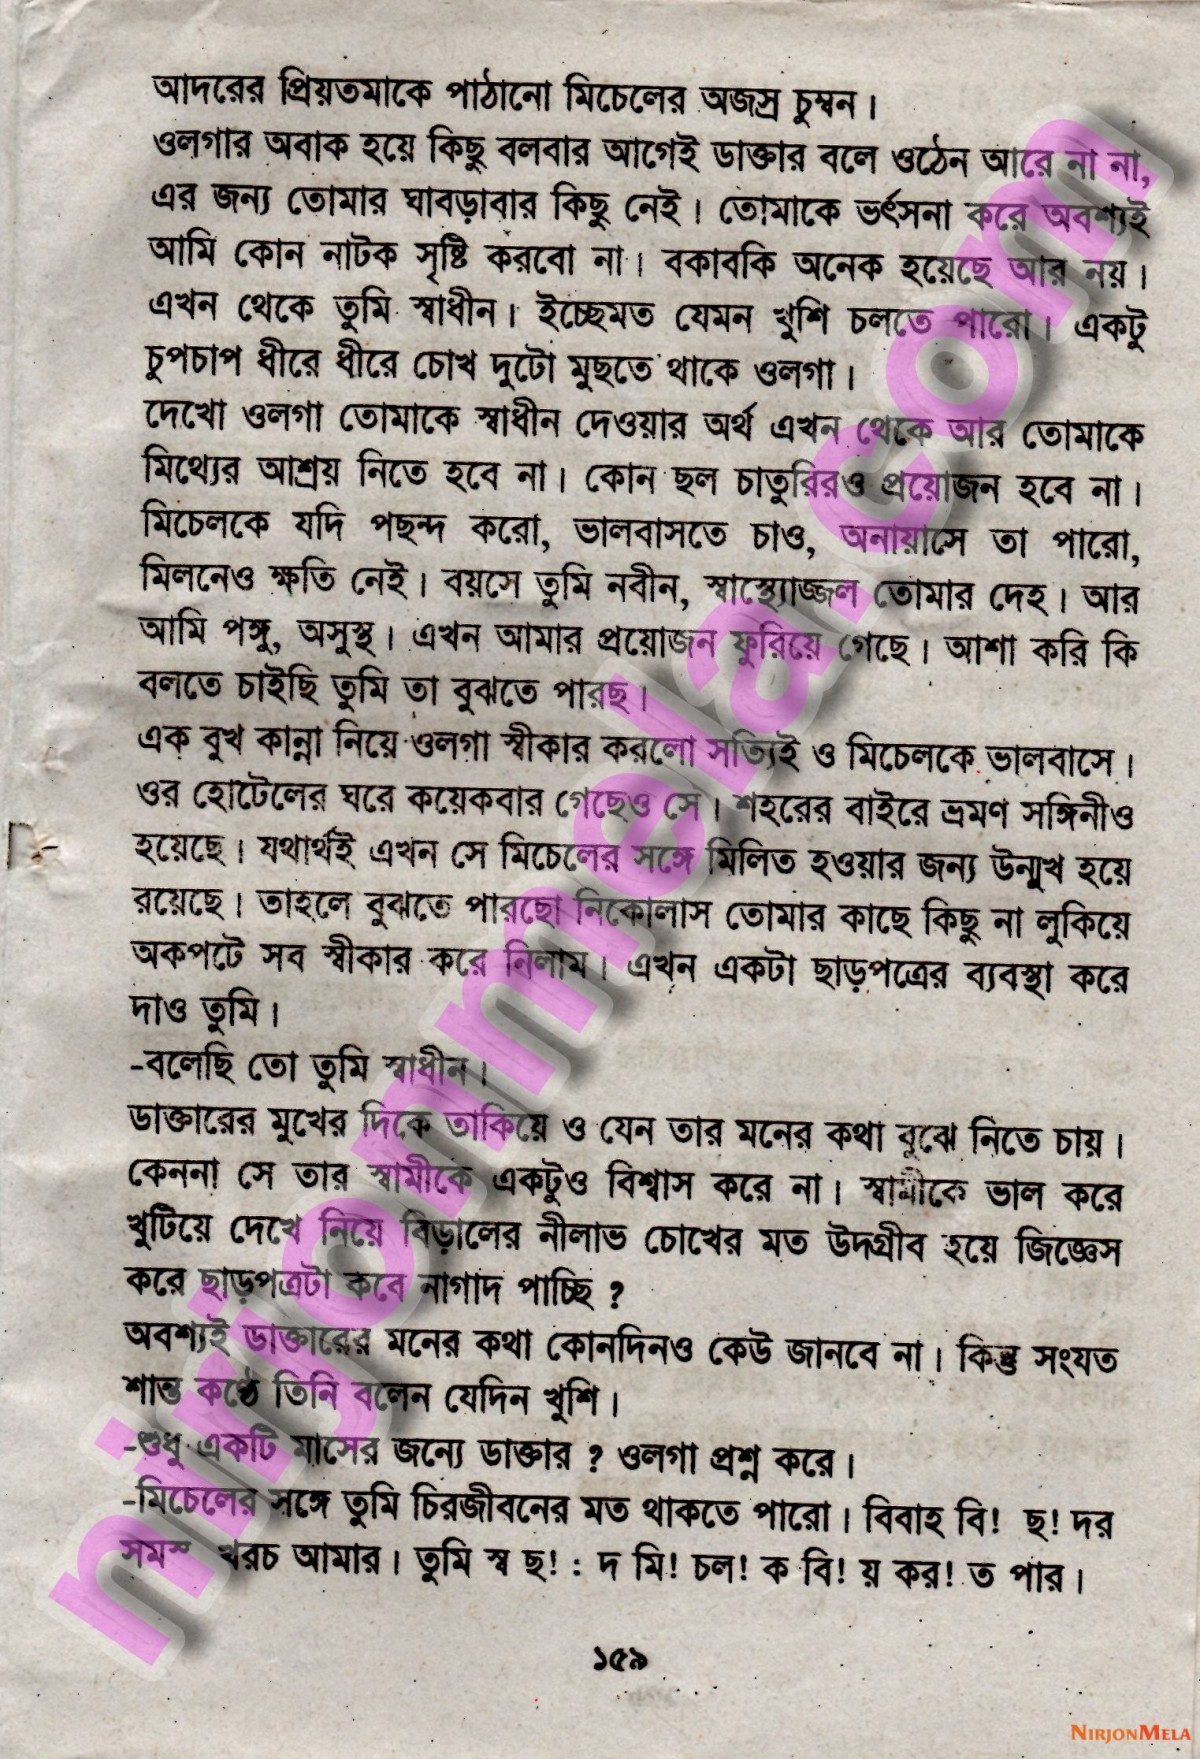 আদরের প্রিয়তমাকে পাঠানো মিচেলের অজস্র চুম্বন।
ওলগার অবাক হয়ে কিছু বলবার আগেই ডাক্তার বলে ওঠেন আরে না না,
এর জন্য তোমার ঘাবড়াবার কিছু নেই। তোমাকে ভর্ৎসনা করে অবশ্যই
আমি কোন নাটক সৃষ্টি করবো না। বকাবকি অনেক হয়েছে আর নয়।
এখন থেকে তুমি স্বাধীন। ইচ্ছেমত যেমন খুশি চলতে পারো। একটু
চুপচাপ ধীরে ধীরে চোখ দুটো মুছতে থাকে ওলগা।
দেখো ওলগা তোমাকে স্বাধীন দেওয়ার অর্থ এখন থেকে আর তোমাকে
মিথ্যের আশ্রয় নিতে হবে না। কোন ছল চাতুরিরও প্রয়োজন হবে না।
মিচেলকে যদি পছন্দ করো, ভালবাসতে চাও, অনায়াসে তা পারো,
মিলনেও ক্ষতি নেই। বয়সে তুমি নবীন, স্বাস্থ্যোজ্জল তোমার দেহ। আর
আমি পঙ্গু, অসুস্থ। এখন আমার প্রয়োজন ফুরিয়ে গেছে। আশা করি কি
বলতে চাইছি তুমি তা বুঝতে পারছ।
এক বুখ কান্না নিয়ে ওলগা স্বীকার করলো সত্যিই ও মিচেলকে ভালবাসে।
ওর হোটেলের ঘরে কয়েকবার গেছেও সে। শহরের বাইরে ভ্রমণ সঙ্গিনীও
হয়েছে। যথার্থই এখন সে মিচেলের সঙ্গে মিলিত হওয়ার জন্য উন্মুখ হয়ে
রয়েছে। তাহলে বুঝতে পারছো নিকোলাস তোমার কাছে কিছু না লুকিয়ে
অকপটে সব স্বীকার করে নিলাম। এখন একটা ছাড়পত্রের ব্যবস্থা করে
দাও তুমি।
-বলেছি তো তুমি স্বাধীন।
ডাক্তারের মুখের দিকে তাকিয়ে ও যেন তার মনের কথা বুঝে নিতে চায়।
কেননা সে তার স্বামীকে একটুও বিশ্বাস করে না। স্বামীকে ভাল করে
খুটিয়ে দেখে নিয়ে বিড়ালের নীলাভ চোখের মত উদগ্রীব হয়ে জিজ্ঞেস
করে ছাড়পত্রটা কবে নাগাদ পাচ্ছি ?
অবশ্যই ডাক্তারের মনের কথা কোনদিনও কেউ জানবে না। কিন্তু সংযত
শান্ত কণ্ঠে তিনি বলেন যেদিন খুশি।
-শুধু একটি মাসের জন্যে ডাক্তার ? ওলগা প্রশ্ন করে।
-মিচেলের সঙ্গে তুমি চিরজীবনের মত থাকতে পারো। বিবাহ বি! ছ! দর
খরচ আমার। তুমি স্ব ছ! : দ মি! চল! ক বি! য় কর! ত পার।
১৫৯
nirjonmela.com
NIRJONMELA